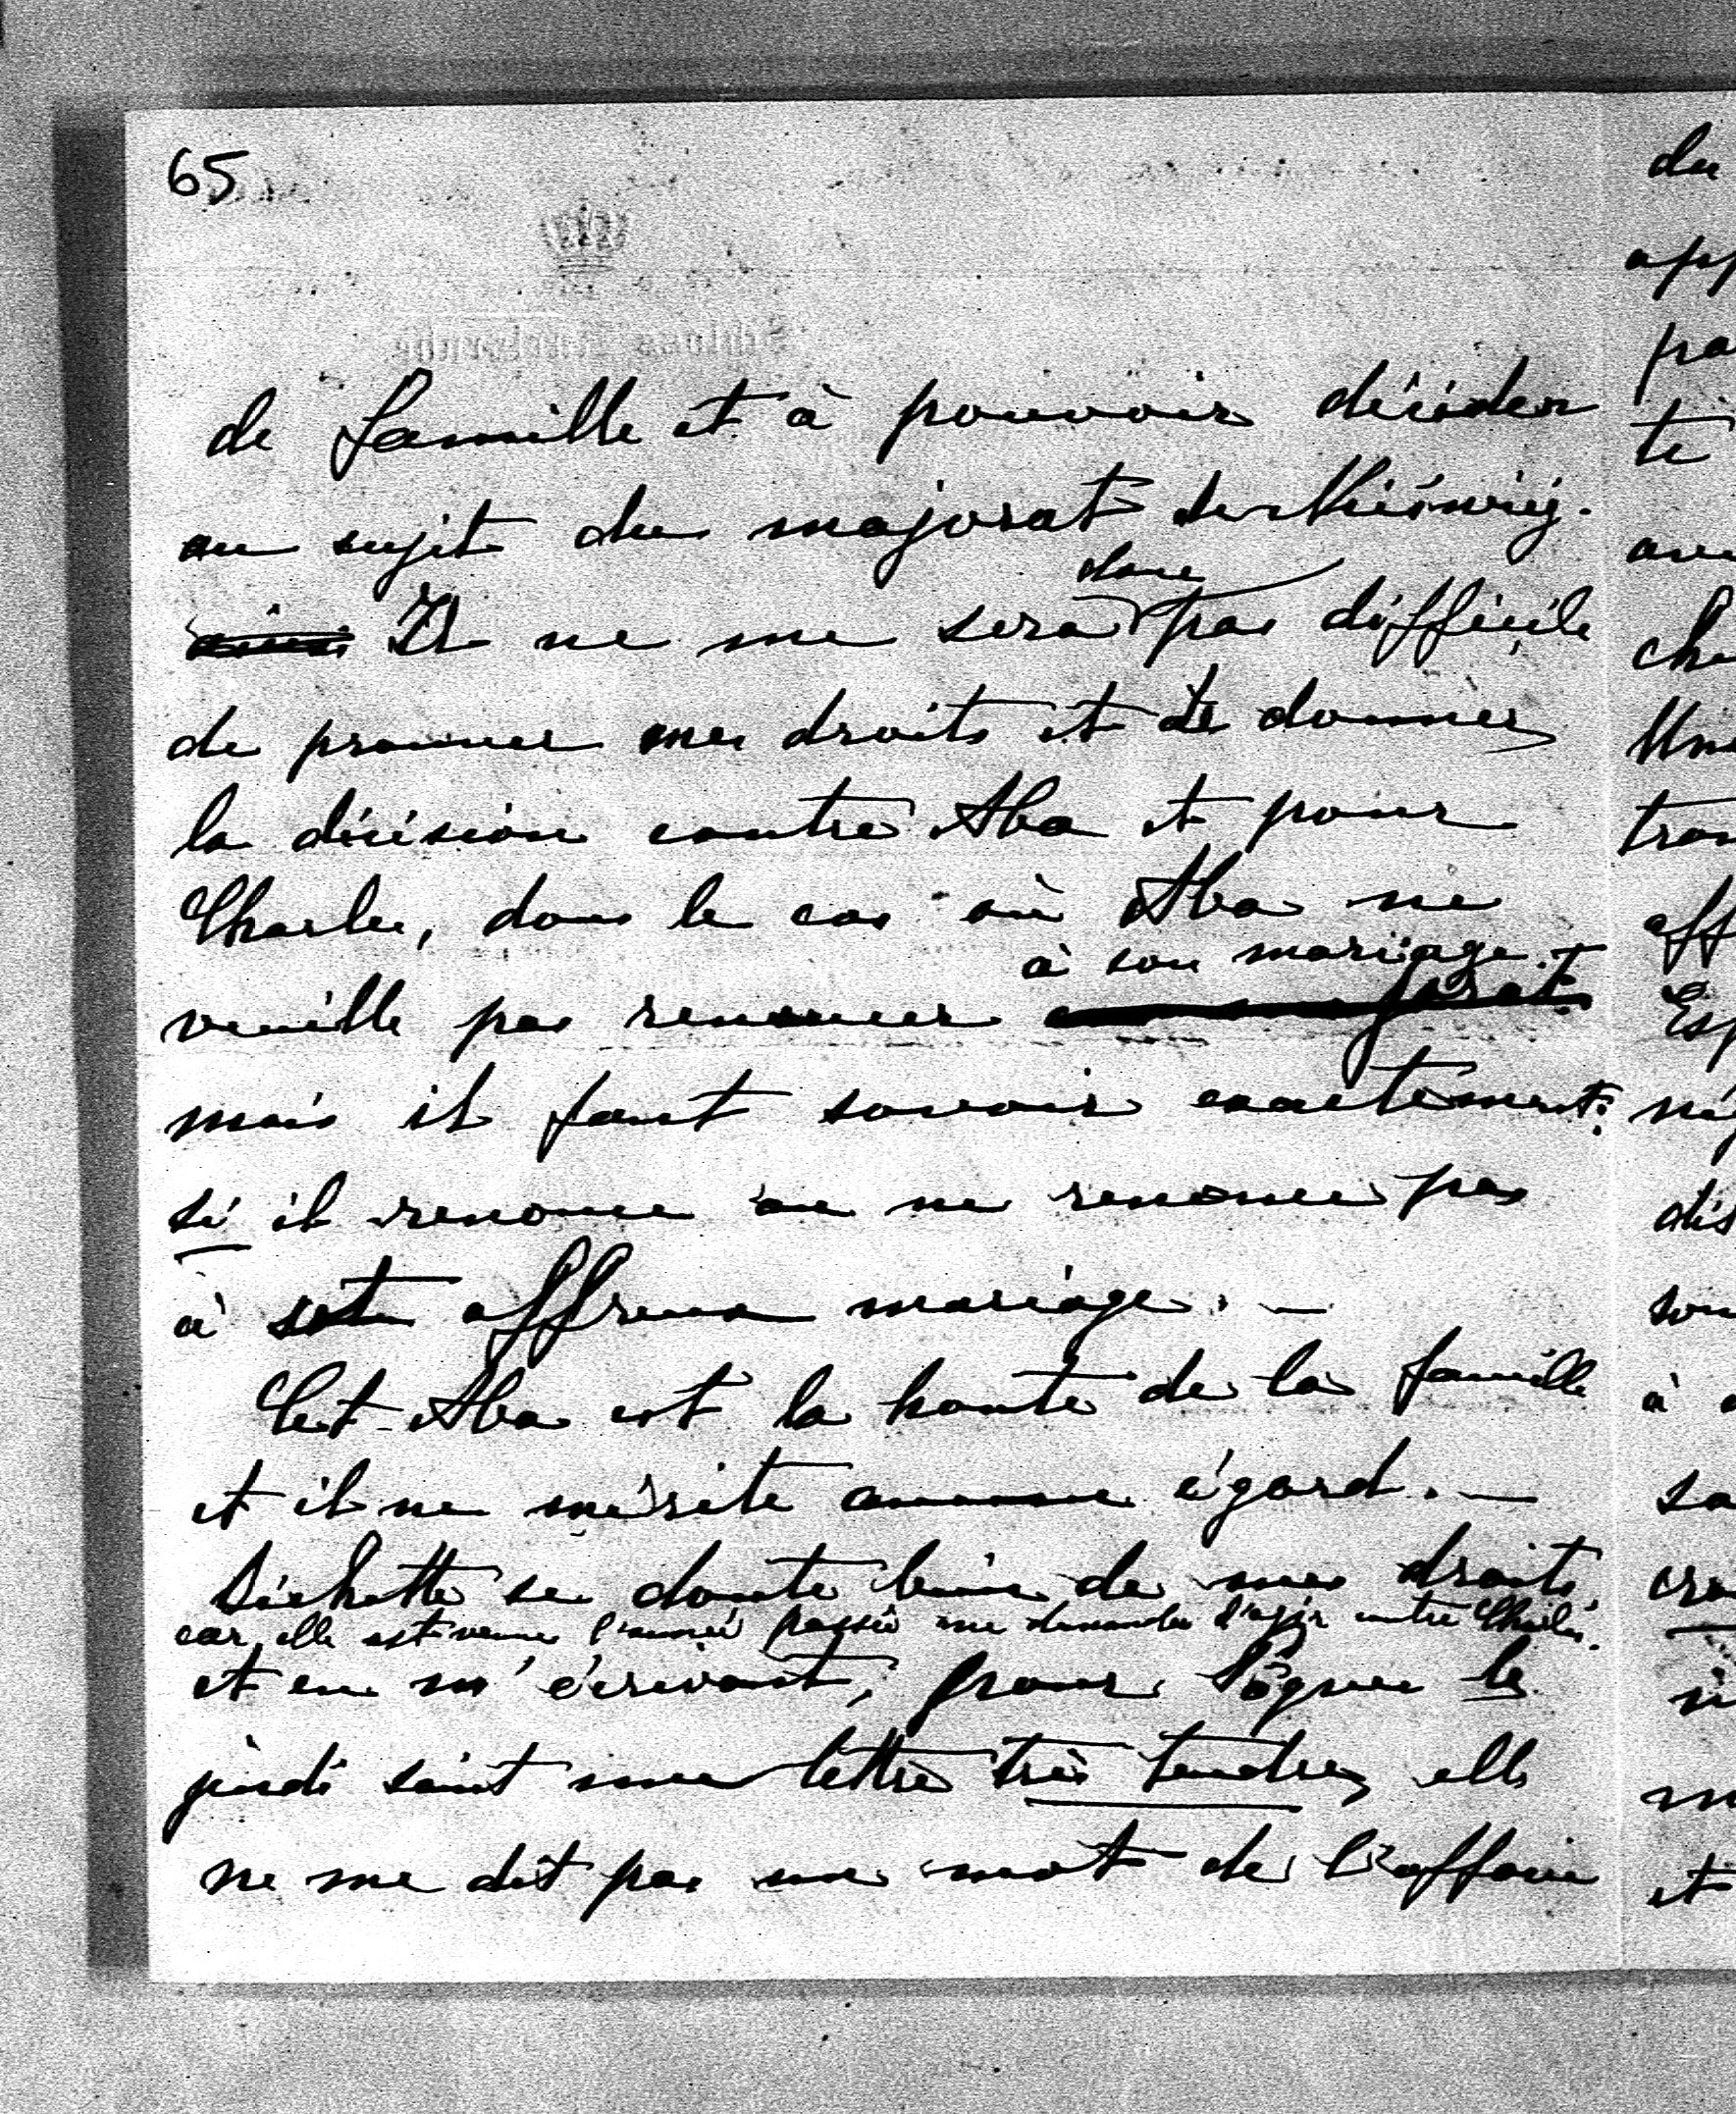 65
Schloss Karlsruhe
de famille et à pouvoir décider
au sujet du majorat de Nieświéj.
donc
ainsi Il ne me sera pas difficile
de prouver mes droits et de donner
la décision contre Aba et pour
Charles, dans le cas où Aba ne
à son mariage.
veuille pas renoncer au majorat
mais il faut savoir exactement:
si il renonce ou ne renonce pas
à cet affreux mariage. —
Cet Aba est la honte de la famille
et il ne mérite aucune égard. —
Bichette se doute bien de mes droits
car elle est venue l'année passée me demander d'agir contre Charles.
et en m'écrivant, pour Pâques le
jeudi saint une lettre très tendre, elle
ne me dit pas un mot de l'affaire
du
app
pa
te
ave
cha
Uni
tran
aff
Esp
né
dis
sou
à
sa
cro
m
et